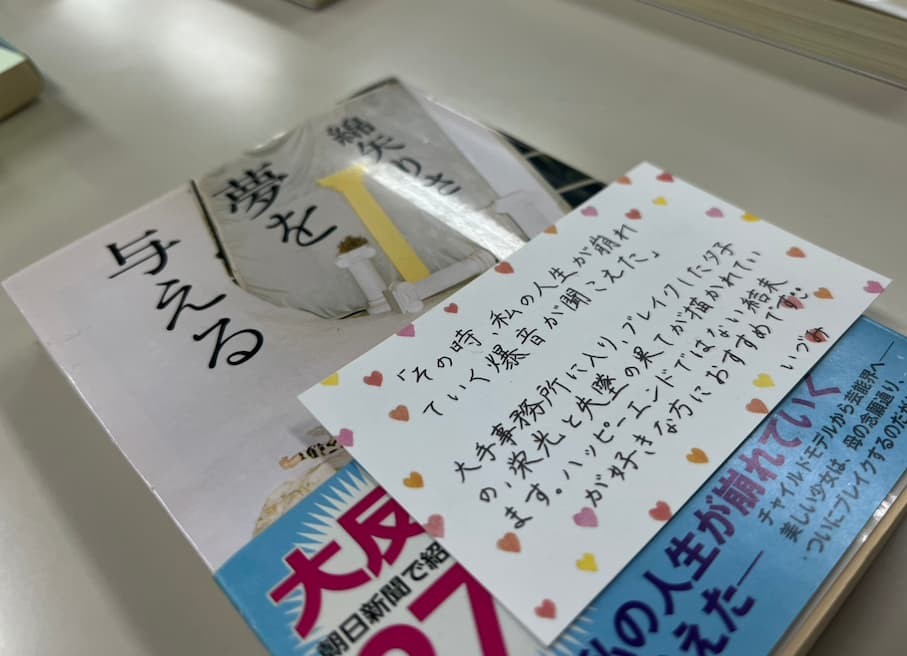 綿矢りさ
夢を
与える
「その時、私の人生が崩れ
ていく爆音が聞こえた」
大手事務所に入り、ブレイクした夕子
の、栄光と失墜の果てが描かれてい
ます。ハッピーエンドではない結末
が好きな方におすすめです
いづみ
大反
朝日新聞で紹
27
私の人生が崩れていく
えた―
チャイルドモデルから芸能界へ―
美しい少女は、母の念願通り、
ついにブレイクするのだが